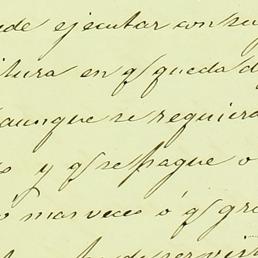 ejecutar con su
itura en q/ queda d
aunque se requiera
y q/ se pague o
mas veces ó q/ gra